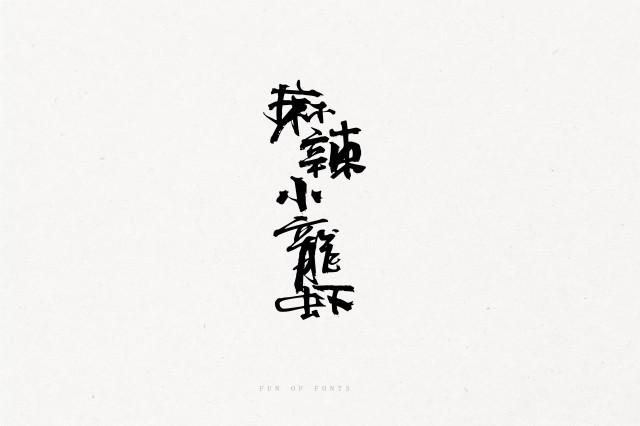 麻辣小龍虾
FUN OF FONTS